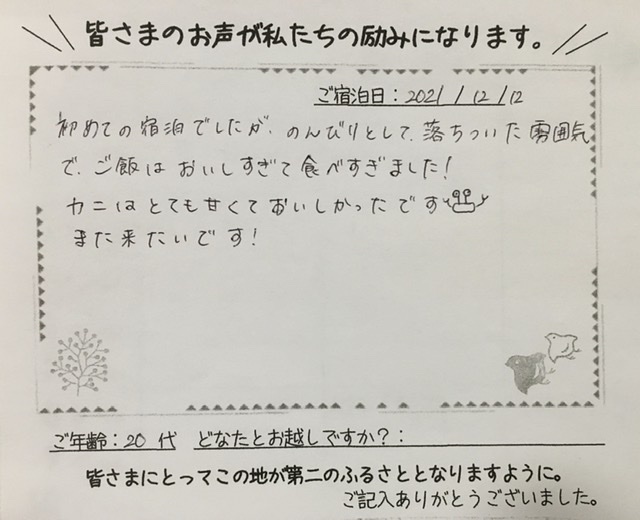 皆さまのお声が私たちの励みになります。
ご宿泊日：2021/12/12
初めての宿泊でしたが、のんびりとして、落ちついた雰囲気
で、ご飯はおいしすぎて食べすぎました!
カニはとても甘くておいしかったです
また来たいです!
ご年齢：20代 どなたとお越しですか？：
皆さまにとってこの地が第二のふるさととなりますように。
ご記入ありがとうございました。